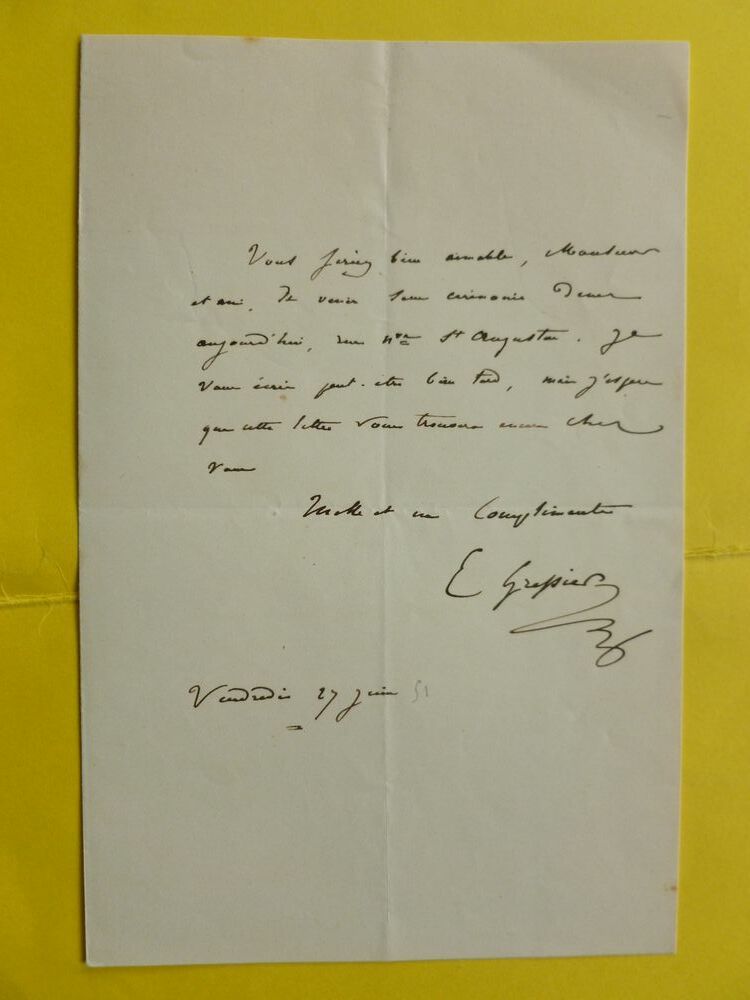 Vous seriez bien aimable, Monsieur
et ami, de venir sans cérémonie diner
aujourd'hui, rue nve St Augustin. Je
vous écris peut-etre bien tard, mais j'espère
que cette lettre vous trouvera encore chez
vous
Mille et un Compliments
E Gressier
Vendredi 27 juin 51